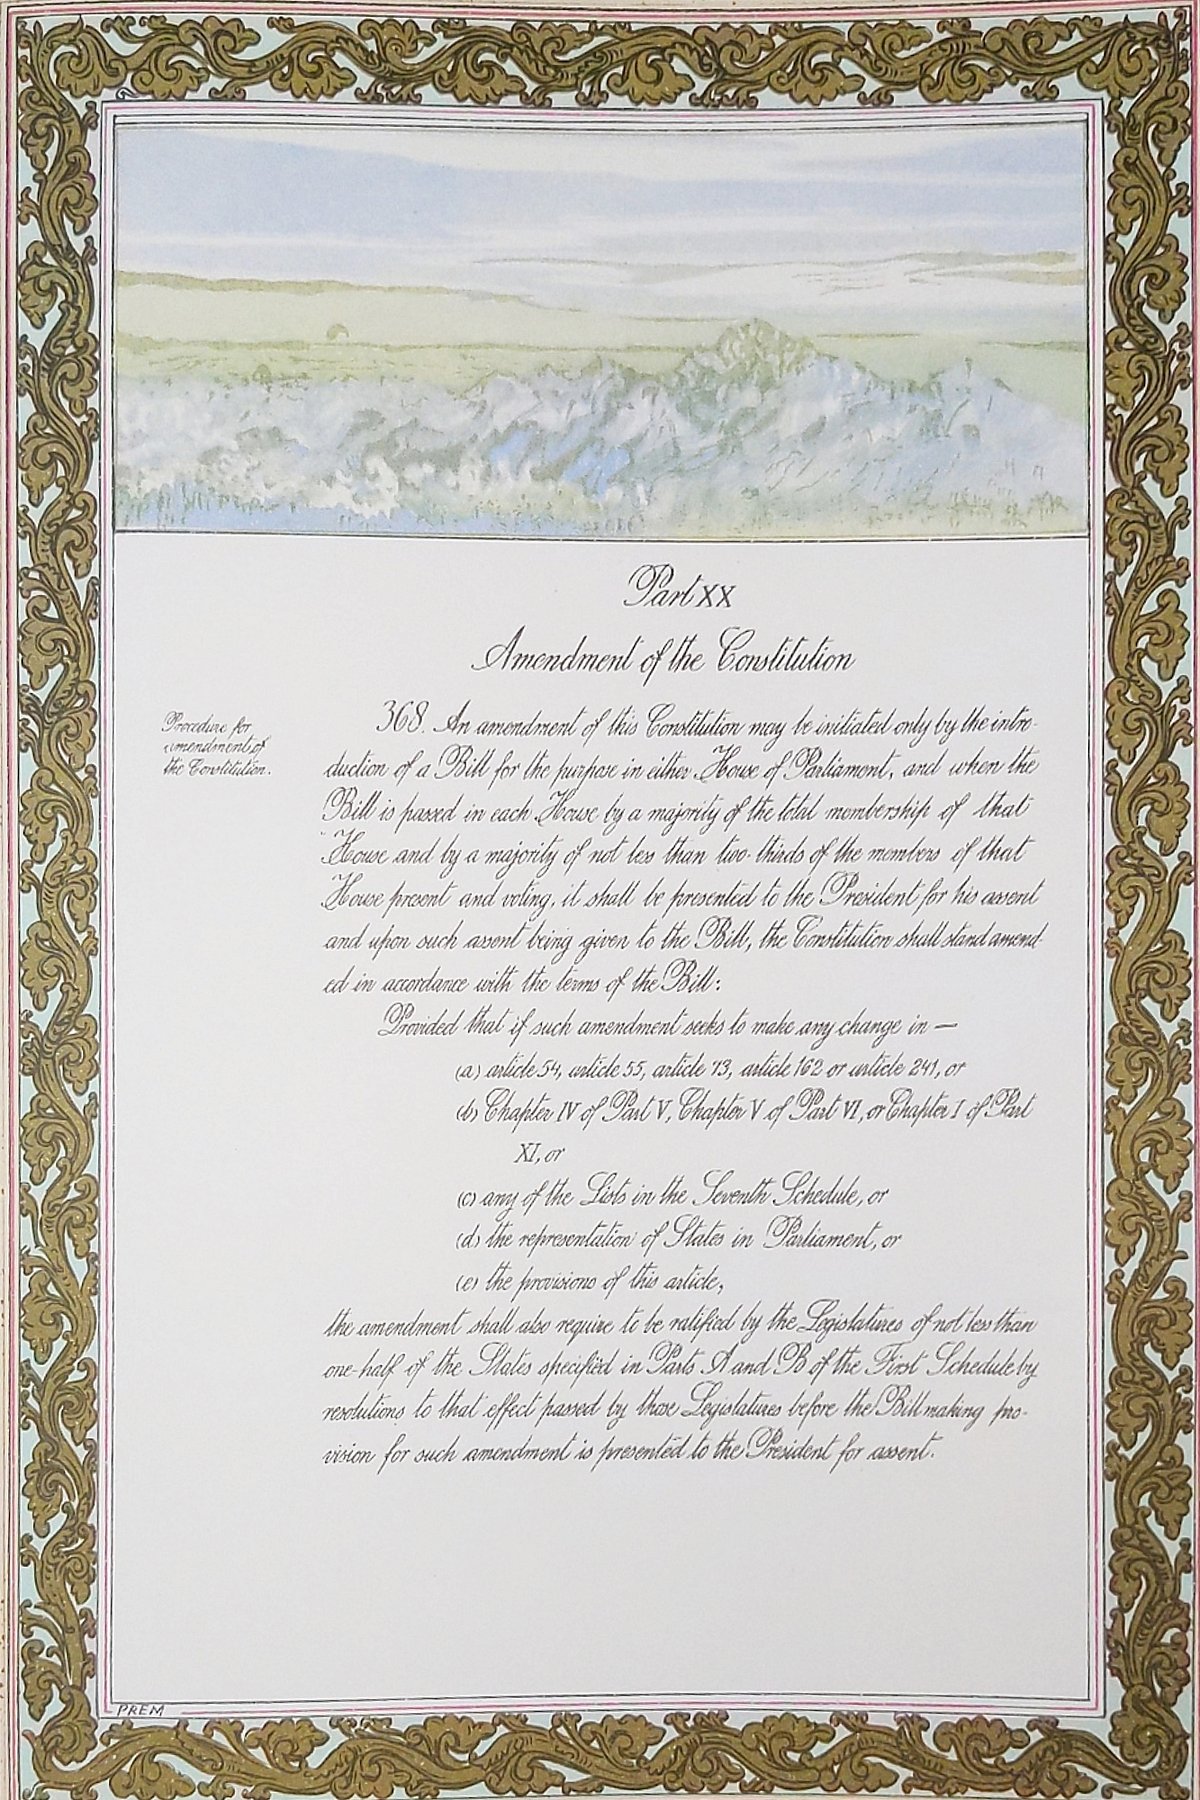 Part XX
Amendment of the Constitution
Procedure for
amendment of
the Constitution.
368. An amendment of this Constitution may be initiated only by the intro-
duction of a Bill for the purpose in either House of Parliament, and when the
Bill is passed in each House by a majority of the total membership of that
House and by a majority of not less than two-thirds of the members of that
House present and voting, it shall be presented to the President for his assent
and upon such assent being given to the Bill, the Constitution shall stand amend-
ed in accordance with the terms of the Bill:
Provided that if such amendment seeks to make any change in —
(a) article 54, article 55, article 73, article 162 or article 241, or
(b) Chapter IV of Part V, Chapter V of Part VI, or Chapter I of Part
XI, or
(c) any of the Lists in the Seventh Schedule, or
(d) the representation of States in Parliament, or
(e) the provisions of this article,
the amendment shall also require to be ratified by the Legislatures of not less than
one-half of the States specified in Parts A and B of the First Schedule by
resolutions to that effect passed by those Legislatures before the Bill making pro-
vision for such amendment is presented to the President for assent.
PREM